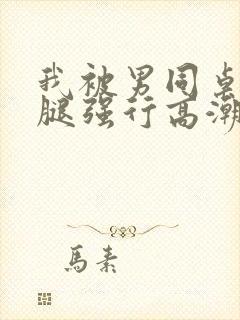 我被男同桌
腿强行高潮
馬素